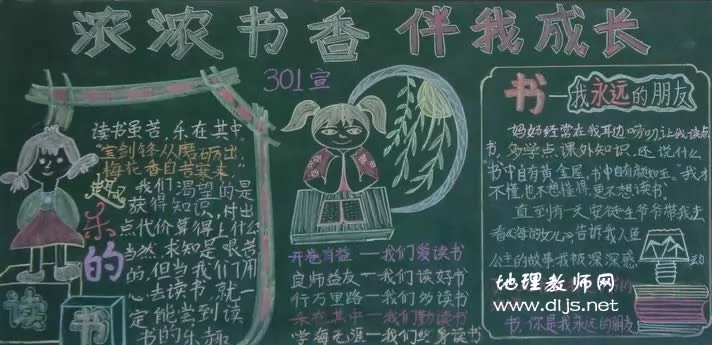 浓浓书香 伴我成长
301宣
读书虽苦,乐在其中
"宝剑锋从磨砺出,
梅花香自苦寒来。"
我们渴望的是
获得知识,付出
点代价算得上什么
当然,求知是艰苦
的,但当我们用
心去读书,就一
定能尝到读
书的乐趣
乐的
读书
开卷有益—我们爱读书
良师益友—我们读好书
行万里路—我们多读书
乐在其中—我们勤读书
学海无涯—我们终身读书
书—我永远的朋友
妈妈经常在我耳边唠叨让我读点
书,多学点课外知识,还说什么
"书中自有黄金屋,书中自有颜如玉。"我才
不懂,也不想懂得,更不想读书。
直到有一天,安徒生爷爷带我走
看《海的女儿》,告诉我人鱼
公主的故事我被深深感动
书,你是我永远的朋友
地理教师网
www.dljs.net